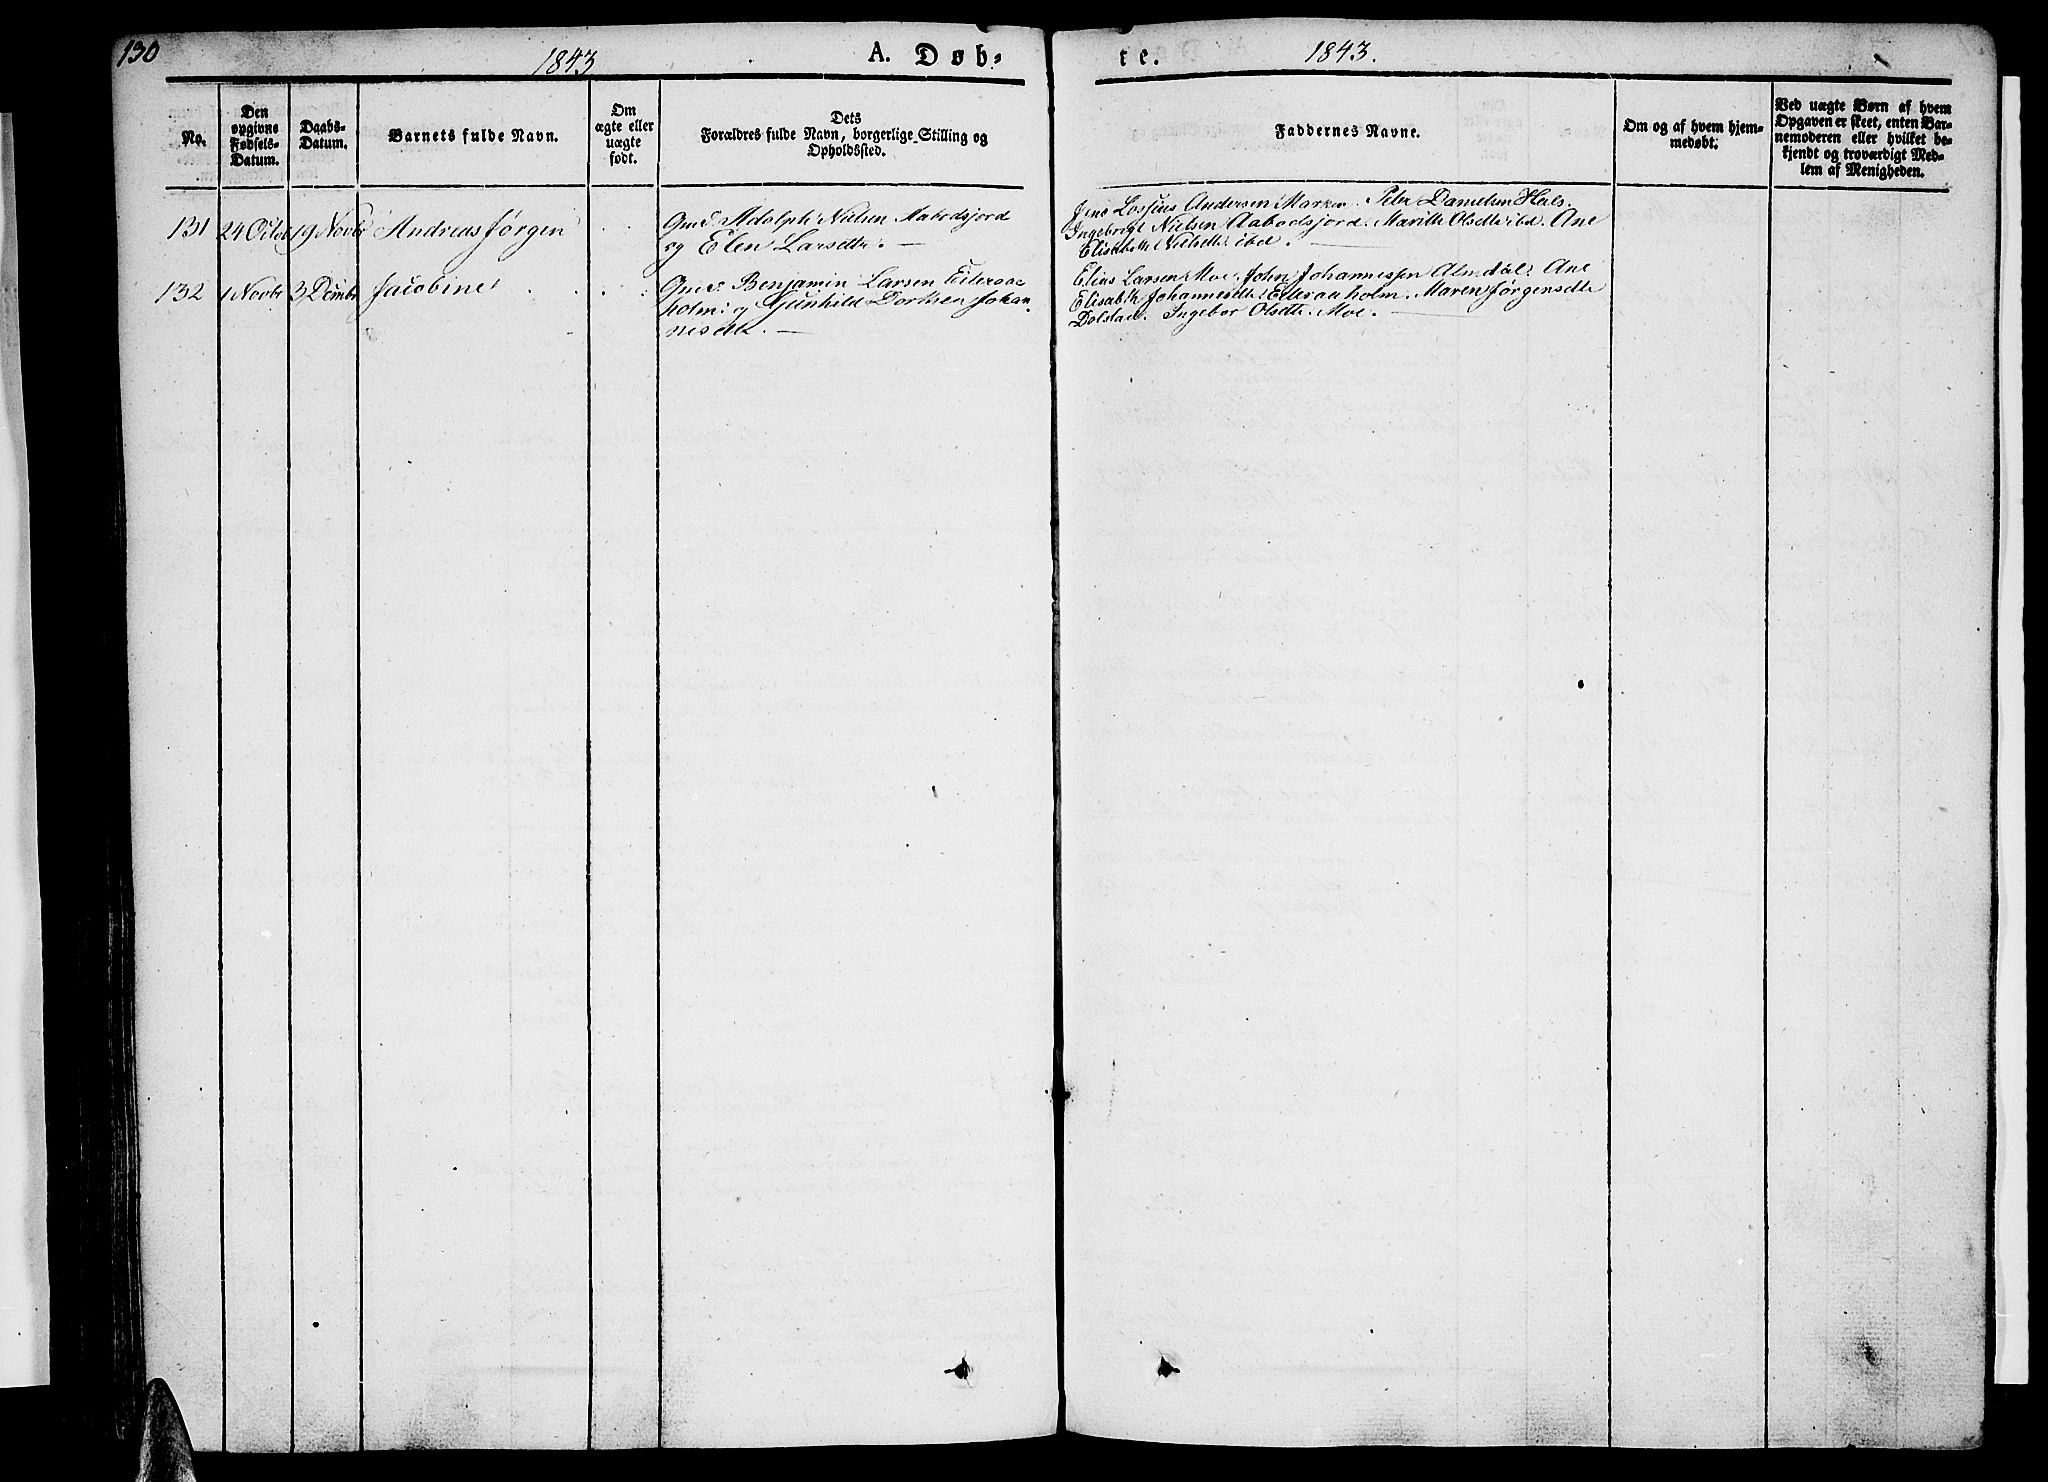 130
1843
A. Døb-
te.
1843.
No.
Den opgivne Fødsels-Datum.
Daabs-Datum.
Barnets fulde Navn.
Om ægte eller uægte født.
Dets
Forældres fulde Navn, borgerlige Stilling og
Opholdssted.
Faddernes Navne.
Om og af hvem hjem-
medøbt.
Ved uægte Børn af hvem
Opgaven er skeet, enten Bar-
nemoderen eller hvilket be-
kjendt og troværdigt Med-
lem af Menigheden.
131 24 Octbr 19 Novbr Andreas Jørgen
Gmd Adolph Nielsen Aabodsjord
og Elen Larsdtr.
Jens Andersen Marken. Peter Danielsen Hals.
Ingebrigt Nielsen Aabodsjord. Marith Olsdtr ibd. Ane
Elisabeth Nielsdtr ibd.
132 1 Novbr 3 Dcmbr Jacobine
Gmd Benjamin Larsen Eiteraa-
holm og Gunhild Dorthea Johan-
nesdtr.
Elias Larsen Moe. John Johannessen Almdal. Ane
Elisabeth Johannesdtr Eiteraaholm. Maren Jørgensdtr
Dolstad. Ingebor Olsdtr Moe.